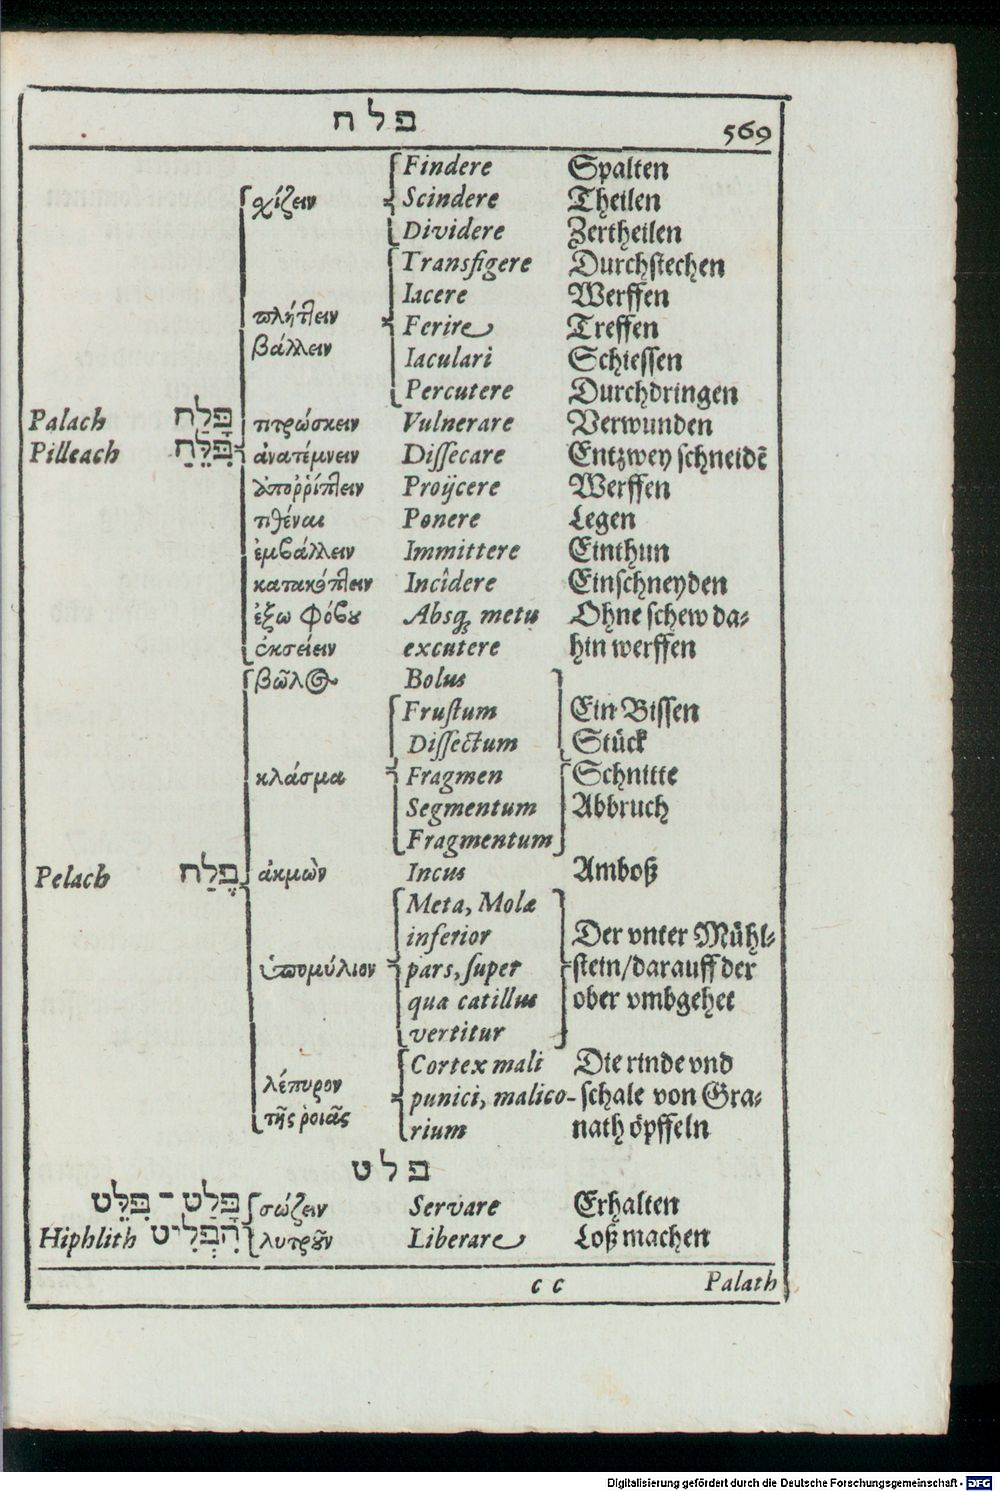 פ ל ח 569
Findere Spalten
σχίζειν Scindere Theilen
Dividere Zertheilen
Transfigere Durchstechen
Iacere Werffen
πλήττειν Ferire Treffen
βάλλειν Iaculari Schiessen
Percutere Durchdringen
Palach פָּלַח τιτρώσκειν Vulnerare Verwunden
Pilleach פִּלֵּחַ ἀνατέμνειν Dissecare Entzwey schneidē
ἀποῤῥίπτειν Proijcere Werffen
τιθέναι Ponere Legen
ἐμβάλλειν Immittere Einthun
κατακόπτειν Incîdere Einschneyden
ἐξω Φόβου Absq; metu Ohne schew da-
ἐκσείειν excutere hin werffen
βῶλος Bolus
Frustum Ein Bissen
Dissectum Stück
κλάσμα Fragmen Schnitte
Segmentum Abbruch
Fragmentum
Pelach פֶּלַח ἀκμὼν Incus Amboß
Meta, Molæ
inferior Der vnter Mühl-
ὑπομύλιον pars, super stein/darauff der
qua catillus ober vmbgehet
vertitur
Cortex mali Die rinde vnd
λέπυρον punici, malico- schale von Gra-
τῆς ῥοιᾶς rium nath öpffeln
פ ל ט
פָּלַט - פִּלֵּט σώζειν Servare Erhalten
Hiphlith הִפְלִיט λυτροῦν Liberare Loß machen
c c Palath
Digitalisierung gefördert durch die Deutsche Forschungsgemeinschaft - DFG